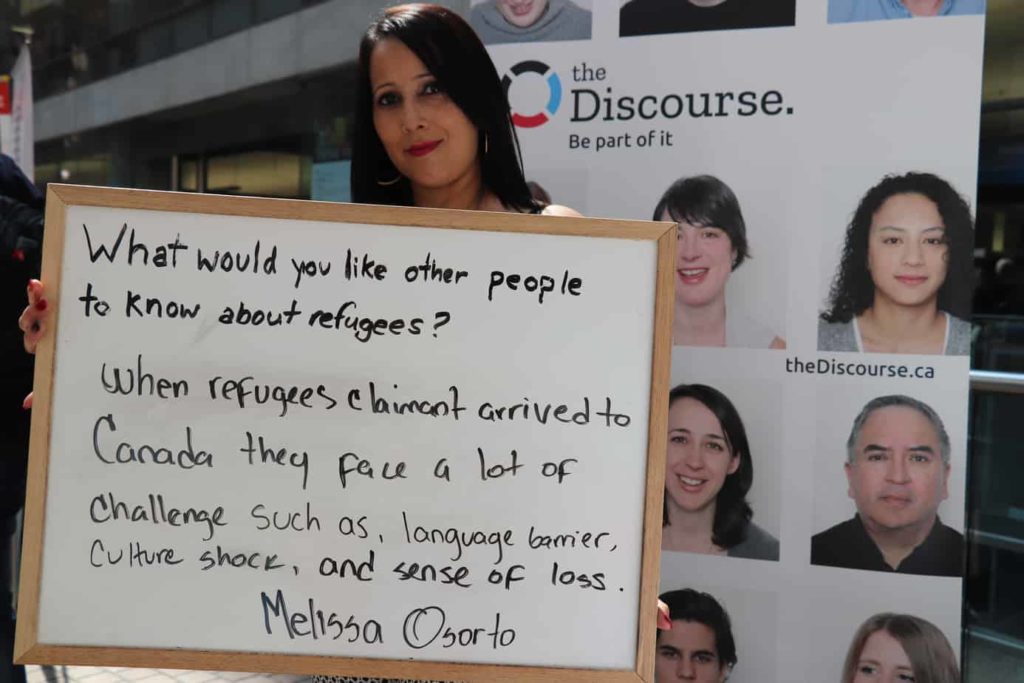 the
Discourse.
Be part of it
What would you like other people
to know about refugees?
When refugees claimant arrived to
Canada they face a lot of
challenge such as, language barrier,
culture shock, and sense of loss.
Melissa Osorto
theDiscourse.ca